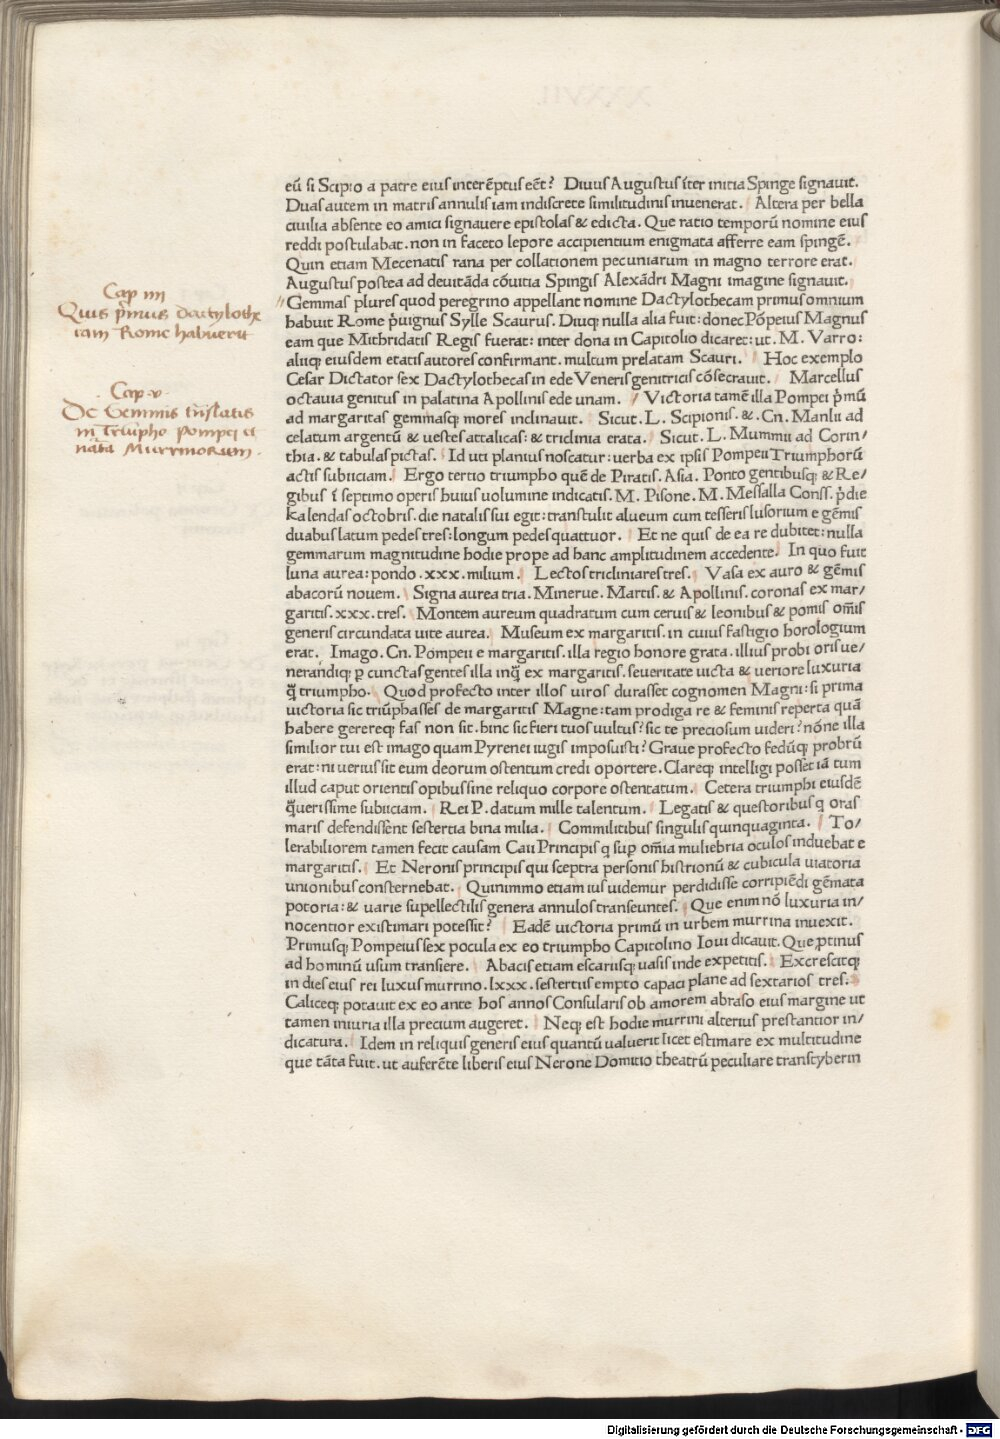 Cap iiii
Quis p̄mus dactylothe
cam Rome habuerit
Cap. v.
De Gemmis trāslatis
in Triūpho Pompei et
nata Murrinorum.
eū si Scipio a patre eius interēptus eēt? Diuus Augustus īter initia Spinge signauit.
Duas autem in matris annulis iam indiscrete similitudinis inuenerat. Altera per bella
ciuilia absente eo amici signauere epistolas & edicta. Que ratio temporū nomine eius
reddi postulabat. non in faceto lepore accipientium enigmata afferre eam spingē.
Quin etiam Mecenatis rana per collationem pecuniarum in magno terrore erat.
Augustus postea ad deuitāda cōuitia Spingis Alexādri Magni imagine signauit.
Gemmas plures quod peregrino appellant nomine Dactylothecam primus omnium
habuit Rome p̄uignus Sylle Scaurus. Diuq; nulla alia fuit: donec Pōpeius Magnus
eam que Mithridatis Regis fuerat: inter dona in Capitolio dicaret: ut. M. Varro:
aliiq; eiusdem etatis autores confirmant. multum prelatam Scauri. Hoc exemplo
Cesar Dictator sex Dactylothecas in ede Veneris genitricis cōsecrauit. Marcellus
octauia genitus in palatina Apollinis ede unam. Victoria tamē illa Pompei p̄mū
ad margaritas gemmasq; mores inclinauit. Sicut. L. Scipionis. &. Cn. Manlii ad
celatum argentū & uestes attalicas: & triclinia erata. Sicut. L. Mummii ad Corin/
thia. & tabulas pictas. Id uti planius noscatur: uerba ex ipsis Pompeii Triumphorū
actis subiiciam. Ergo tertio triumpho quē de Piratis. Asia. Ponto gentibusq; & Re/
gibus ī septimo operis huius uolumine indicatis. M. Pisone. M. Messalla Conss. p̄die
kalendas octobris. die natalis sui egit: transtulit alueum cum tesseris lusorium e gēmis
duabus latum pedes tres: longum pedes quattuor. Et ne quis de ea re dubitet: nulla
gemmarum magnitudine hodie prope ad hanc amplitudinem accedente. In quo fuit
luna aurea: pondo. xxx. milium. Lectos tricliniares tres. Vasa ex auro & gēmis
abacorū nouem. Signa aurea tria. Minerue. Martis. & Apollinis. coronas ex mar/
garitis. xxx. tres. Montem aureum quadratum cum ceruis & leonibus & pomis oīs
generis circundata uite aurea. Museum ex margaritis. in cuius fastigio horologium
erat. Imago. Cn. Pompeii e margaritis. illa regio honore grata. illius probi oris ue/
nerandiq; p cunctas gentes illa inq̄ ex margaritis. seueritate uicta & ueriore luxuria
q̄ triumpho. Quod profecto inter illos uiros durasset cognomen Magni: si prima
uictoria sic triūphasses de margaritis Magne: tam prodiga re & feminis reperta quā
habere gerereq; fas non sit. hinc sic fieri tuos uultus? sic te preciosum uideri? nōne illa
similior tui est imago quam Pyrenei iugis imposuisti? Graue profecto fedūq; probrū
erat: ni uerius sit eum deorum ostentum credi oportere. Clareq; intelligi posset iā tum
illud caput orientis opibus sine reliquo corpore ostentatum. Cetera triumphi eiusdē
q̄ uerissime subiiciam. Rei P. datum mille talentum. Legatis & questoribus q oras
maris defendissēnt sestertia bina milia. Commilitibus singulis quinquaginta. To/
lerabiliorem tamen fecit causam Caii Principis q sup oīa muliebria oculos induebat e
margaritis. Et Neronis principis qui sceptra personis histrionū & cubicula uiatoria
unionibus consternebat. Quinimmo etiam ius uidemur perdidisse corripiēdi gēmata
potoria: & uarie supellectilis genera annulos transeuntes. Que enim nō luxuria in/
nocentior existimari potessit? Eadē uictoria primū in urbem murrina inuexit.
Primusq; Pompeius sex pocula ex eo triumpho Capitolino Ioui dicauit. Que ptinus
ad hominū usum transiere. Abacis etiam escariisq; uasis inde expetitis. Excrescitq;
in dies eius rei luxus murrino. lxxx. sestertiis empto capaci plane ad sextarios tres.
Caliceq; potauit ex eo ante hos annos Consularis ob amorem abraso eius margine ut
tamen iniuria illa precium augeret. Neq; est hodie murrini alterius prestantior in/
dicatura. Idem in reliquis generis eius quantū ualuerit licet estimare ex multitudine
que tāta fuit. ut auferēte liberis eius Nerone Domitio theatrū peculiare transtyberin
Digitalisierung gefördert durch die Deutsche Forschungsgemeinschaft - DFG